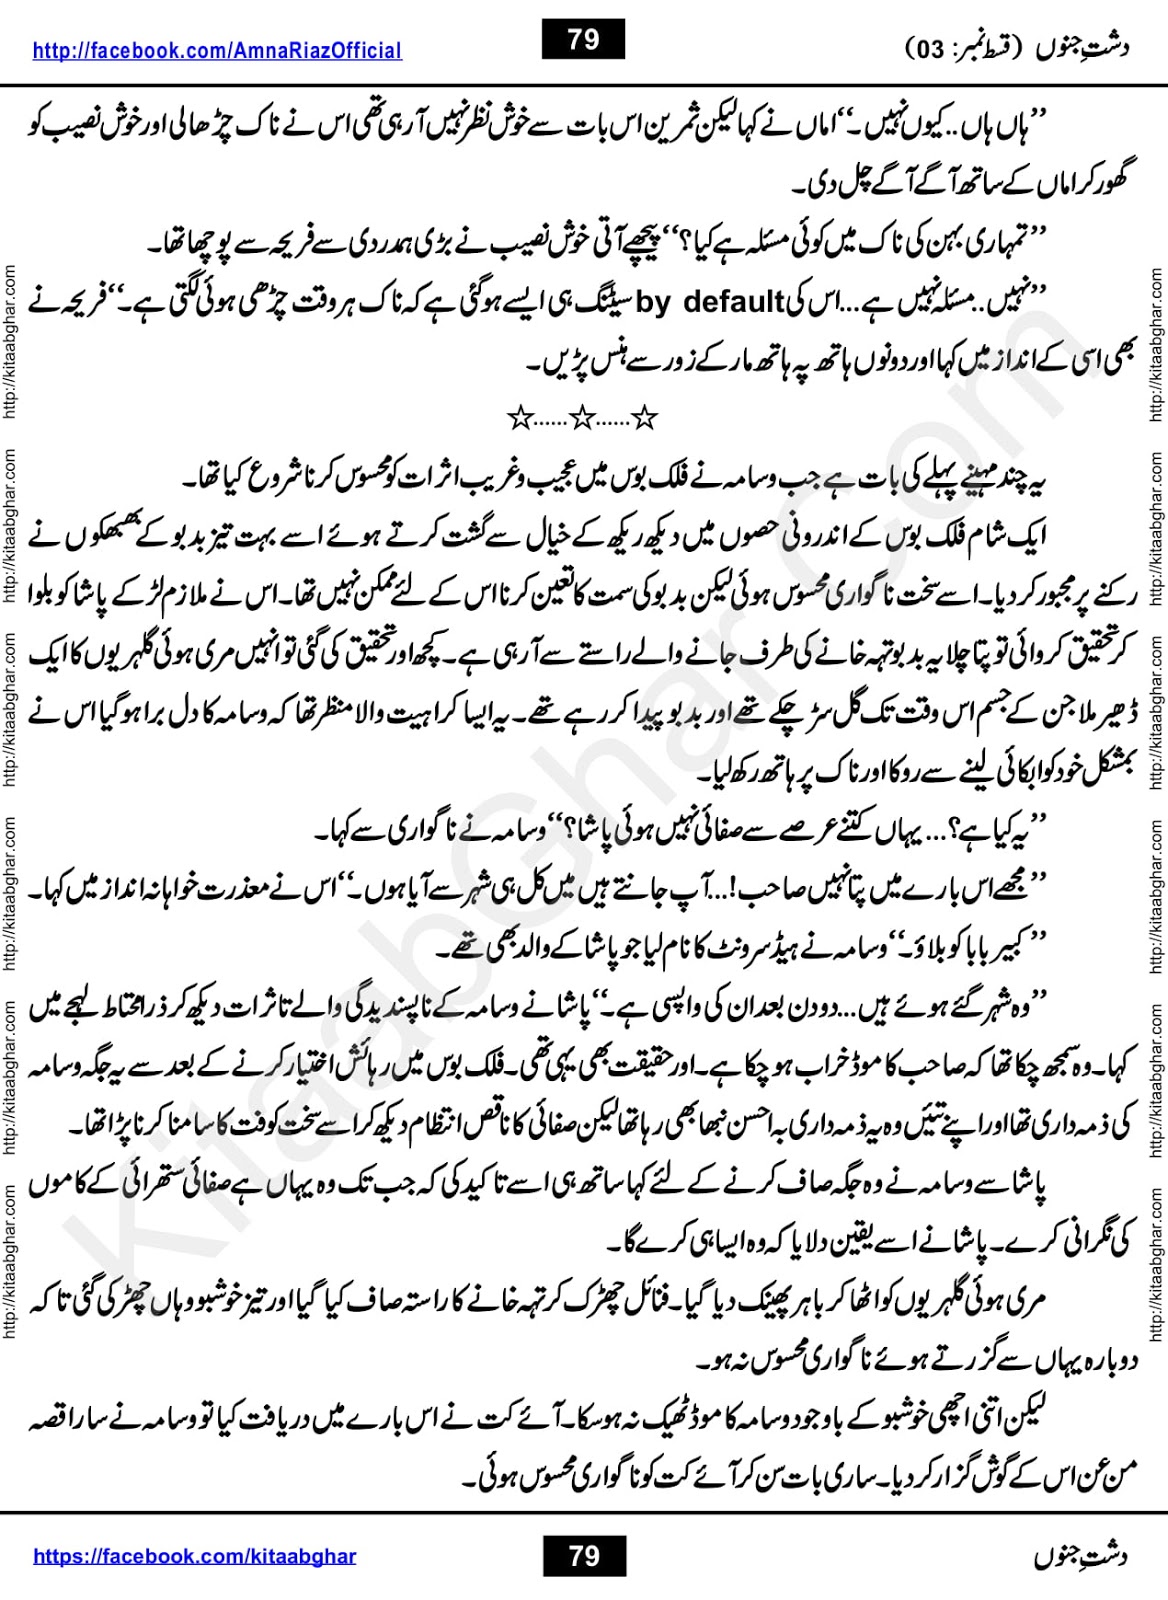 http://facebook.com/AmnaRiazOfficial 79 دشتِ جنوں (قسط نمبر: 03)
’’ہاں ہاں..کیوں نہیں۔‘‘اماں نے کہا لیکن ثمرین اس بات سے خوش نظر نہیں آ رہی تھی اس نے ناک چڑھا لی اور خوش نصیب کو
گھور کر اماں کے ساتھ آگے آگے چل دی۔
’’تمہاری بہن کی ناک میں کوئی مسئلہ ہے کیا؟‘‘ پیچھے آتی خوش نصیب نے بڑی ہمدردی سے فریحہ سے پوچھا تھا۔
’’نہیں..مسئلہ نہیں ہے...اس کی by default سیٹنگ ہی ایسے ہو گئی ہے کہ ناک ہر وقت چڑھی ہوئی لگتی ہے۔‘‘فریحہ نے
بھی اسی کے انداز میں کہا اور دونوں ہاتھ پہ ہاتھ مار کے زور سے ہنس پڑیں۔
☆......☆......☆
یہ چند مہینے پہلے کی بات ہے جب وسامہ نے فلک بوس میں عجیب و غریب اثرات کو محسوس کرنا شروع کیا تھا۔
ایک شام فلک بوس کے اندرونی حصوں میں دیکھ ریکھ کے خیال سے گشت کرتے ہوئے اسے بہت تیز بدبو کے بھبھکوں نے
رکنے پر مجبور کر دیا۔اسے سخت ناگواری محسوس ہوئی لیکن بدبو کی سمت کا تعین کرنا اس کے لئے ممکن نہیں تھا۔اس نے ملازم لڑکے پاشا کو بلوا
کر تحقیق کروائی تو پتا چلا یہ بدبو تہہ خانے کی طرف جانے والے راستے سے آ رہی ہے۔کچھ اور تحقیق کی گئی تو انہیں مری ہوئی گلہریوں کا ایک
ڈھیر ملا جن کے جسم اس وقت تک گل سڑ چکے تھے اور بدبو پیدا کر رہے تھے۔یہ ایسا کراہیت والا منظر تھا کہ وسامہ کا دل برا ہو گیا اس نے
بمشکل خود کو ابکائی لینے سے روکا اور ناک پر ہاتھ رکھ لیا۔
’’یہ کیا ہے؟...یہاں کتنے عرصے سے صفائی نہیں ہوئی پاشا؟‘‘وسامہ نے ناگواری سے کہا۔
’’مجھے اس بارے میں پتا نہیں صاحب!...آپ جانتے ہیں میں کل ہی شہر سے آیا ہوں۔‘‘اس نے معذرت خواہانہ انداز میں کہا۔
’’کبیر بابا کو بلاؤ۔‘‘وسامہ نے ہیڈ سرونٹ کا نام لیا جو پاشا کے والد بھی تھے۔
’’وہ شہر گئے ہوئے ہیں...دو دن بعد ان کی واپسی ہے۔‘‘پاشا نے وسامہ کے ناپسندیدگی والے تاثرات دیکھ کر ذرا محتاط لہجے میں
کہا۔وہ سمجھ چکا تھا کہ صاحب کا موڈ خراب ہو چکا ہے۔اور حقیقت بھی یہی تھی۔فلک بوس میں رہائش اختیار کرنے کے بعد سے یہ جگہ وسامہ
کی ذمہ داری تھا اور اپنے تئیں وہ یہ ذمہ داری بہ احسن نبھا بھی رہا تھا لیکن صفائی کا ناقص انتظام دیکھ کر اسے سخت کوفت کا سامنا کرنا پڑا تھا۔
پاشا سے وسامہ نے وہ جگہ صاف کرنے کے لئے کہا ساتھ ہی اسے تاکید کی کہ جب تک وہ یہاں ہے صفائی ستھرائی کے کاموں
کی نگرانی کرے۔پاشا نے اسے یقین دلایا کہ وہ ایسا ہی کرے گا۔
مری ہوئی گلہریوں کو اٹھا کر باہر پھینک دیا گیا۔فنائل چھڑک کر تہہ خانے کا راستہ صاف کیا گیا اور تیز خوشبو وہاں چھڑکی گئی تا کہ
دوبارہ یہاں سے گزرتے ہوئے ناگواری محسوس نہ ہو۔
لیکن اتنی اچھی خوشبو کے باوجود وسامہ کا موڈ ٹھیک نہ ہو سکا۔آئے کت نے اس بارے میں دریافت کیا تو وسامہ نے سارا قصہ
من عن اس کے گوش گزار کر دیا۔ساری بات سن کر آئے کت کو ناگواری محسوس ہوئی۔
https://facebook.com/kitaabghar 79 دشتِ جنوں
http://kitaabghar.com http://kitaabghar.com http://kitaabghar.com http://kitaabghar.com http://kitaabghar.com http://kitaabghar.com
http://kitaabghar.com http://kitaabghar.com http://kitaabghar.com http://kitaabghar.com http://kitaabghar.com http://kitaabghar.com
KitaabGhar.Com